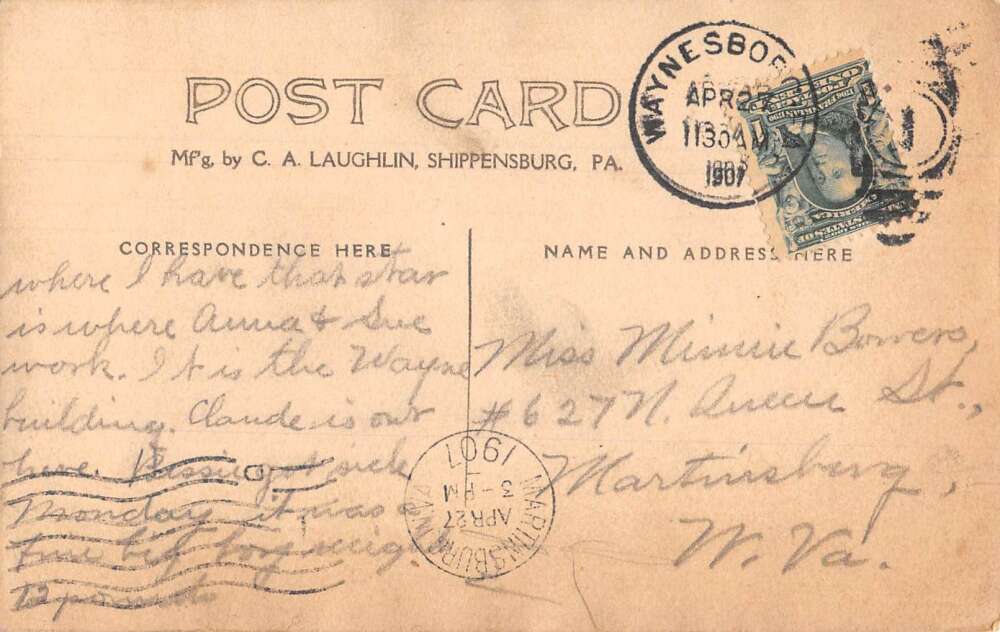 POST CARD
Mf'g, by C. A. LAUGHLIN, SHIPPENSBURG, PA.
WAYNESBORO
APR 27
1130AM
1907
CORRESPONDENCE HERE
where I have that star
is where Anna & Sue
work. It is the Wayne
building. Claude is out
here. Bessie got sick
Monday it was a
fine big boy weigh
12 pounds
NAME AND ADDRESS HERE
Miss Minnie Bowers,
#627 N. Queen St.,
Martinsburg,
W. Va.
MARTINSBURG
APR 27
3-PM
1907